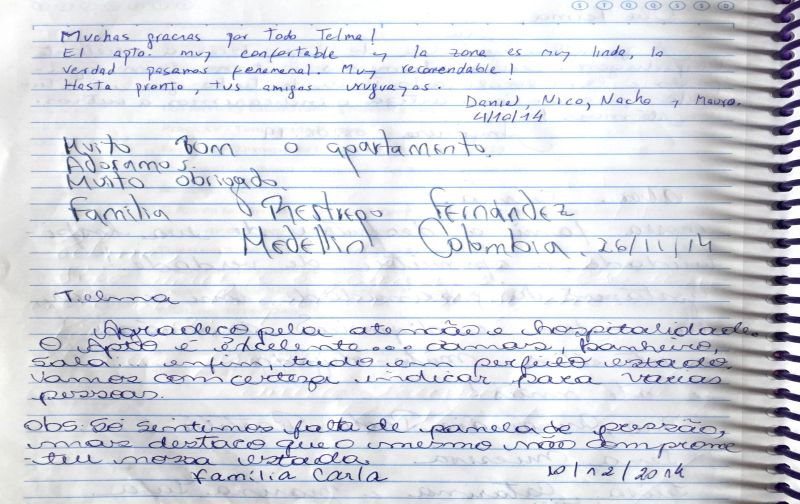 Muchas gracias por todo Telma!
El apto. muy confortable y la zona es muy linda, la
verdad pasamos fenomenal. Muy recomendable!
Hasta pronto, tus amigos uruguayos.
Daniel, Nico, Nacho y Mauro.
4/10/14
Muito Bom o apartamento.
Adoramos.
Muito obrigado.
Familia Restrepo Fernández
Medellin Colombia. 26/11/14
Telma
Agradeço pela atenção e hospitalidade.
O Apto é Excelente... camas, banheiro,
sala... enfim, tudo em perfeito estado.
Vamos com certeza indicar para varias
pessoas.
Obs: Só sentimos falta de panela de pressão,
mas destaco que o mesmo não comprome
-teu nossa estada.
família Carla 10/12/2014